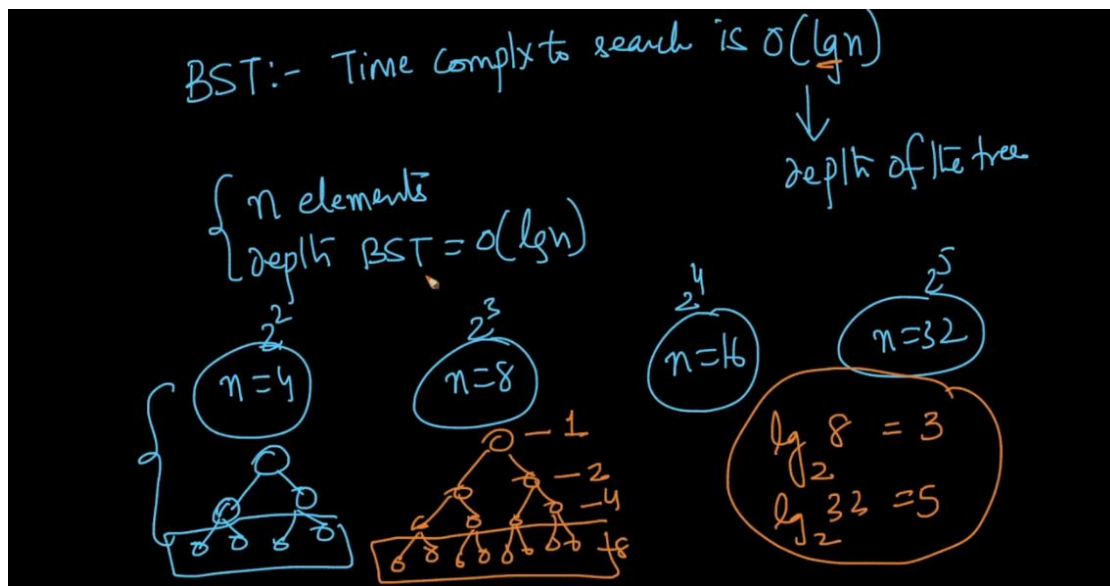 BST:- Time complx to search is O(lgn)
depth of the tree
n elements
depth BST = O(lgn)
2^2
n=4
2^3
n=8
2^4
n=16
2^5
n=32
- 1
- 2
- 4
8
lg_2 8 = 3
lg_2 32 = 5